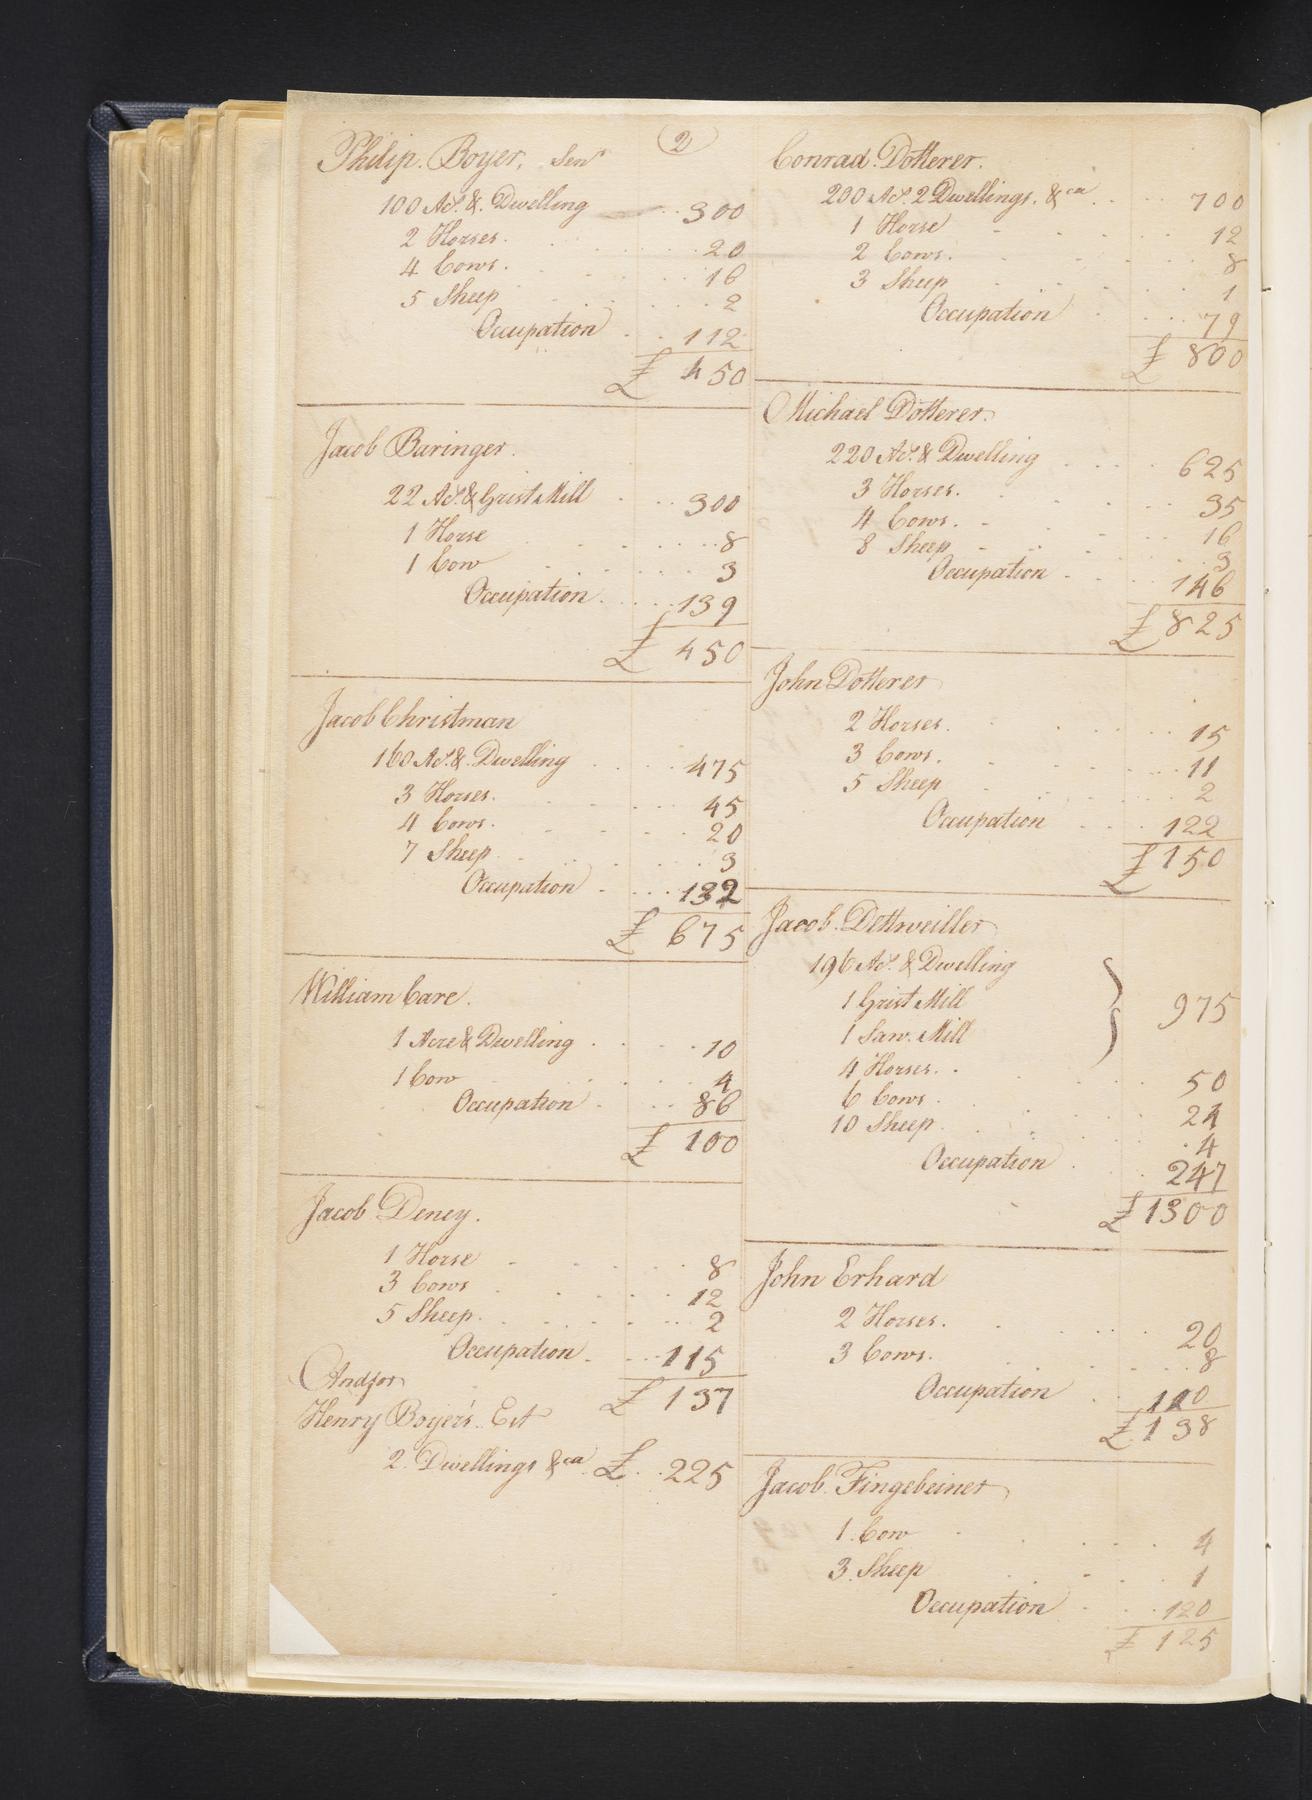 2
Philip. Boyer. Senr
100 Acs. &. Dwelling 300
2 Horses. 20
4 Cows. 16
5 Sheep 2
Occupation 112
£ 450
Jacob Baringer.
22 Acs. & Grist Mill 300
1 Horse 8
1 Cow 3
Occupation. 139
£ 450
Jacob Christman
160 Acs. &. Dwelling 475
3 Horses. 45
4 Cows. 20
7 Sheep 3
Occupation 132
£ 675
William Care.
1 Acre & Dwelling 10
1 Cow 4
Occupation 86
£ 100
Jacob Deney.
1 Horse 8
3 Cows 12
5 Sheep. 2
Occupation 115
£ 137
And for
Henry Boyer's. Est
2. Dwellings &ca £ 225
Conrad. Dotterer.
200 Acs. 2 Dwellings. &ca 700
1 Horse 12
2 Cows. 8
3 Sheep 1
Occupation 79
£ 800
Michael Dotterer.
220 Acs. & Dwelling 625
3 Horses. 35
4 Cows. 16
8 Sheep 3
Occupation 146
£ 825
John Dotterer
2 Horses. 15
3 Cows. 11
5 Sheep 2
Occupation 122
£ 150
Jacob. Dettweiller
196 Acs. & Dwelling
1 Grist Mill 975
1 Saw. Mill
4 Horses. 50
6 Cows. 24
10 Sheep. 4
Occupation 247
£ 1300
John Erhard
2 Horses. 20
3 Cows. 8
Occupation 110
£ 138
Jacob. Fingebeiner
1. Cow 4
3. Sheep 1
Occupation 120
£ 125